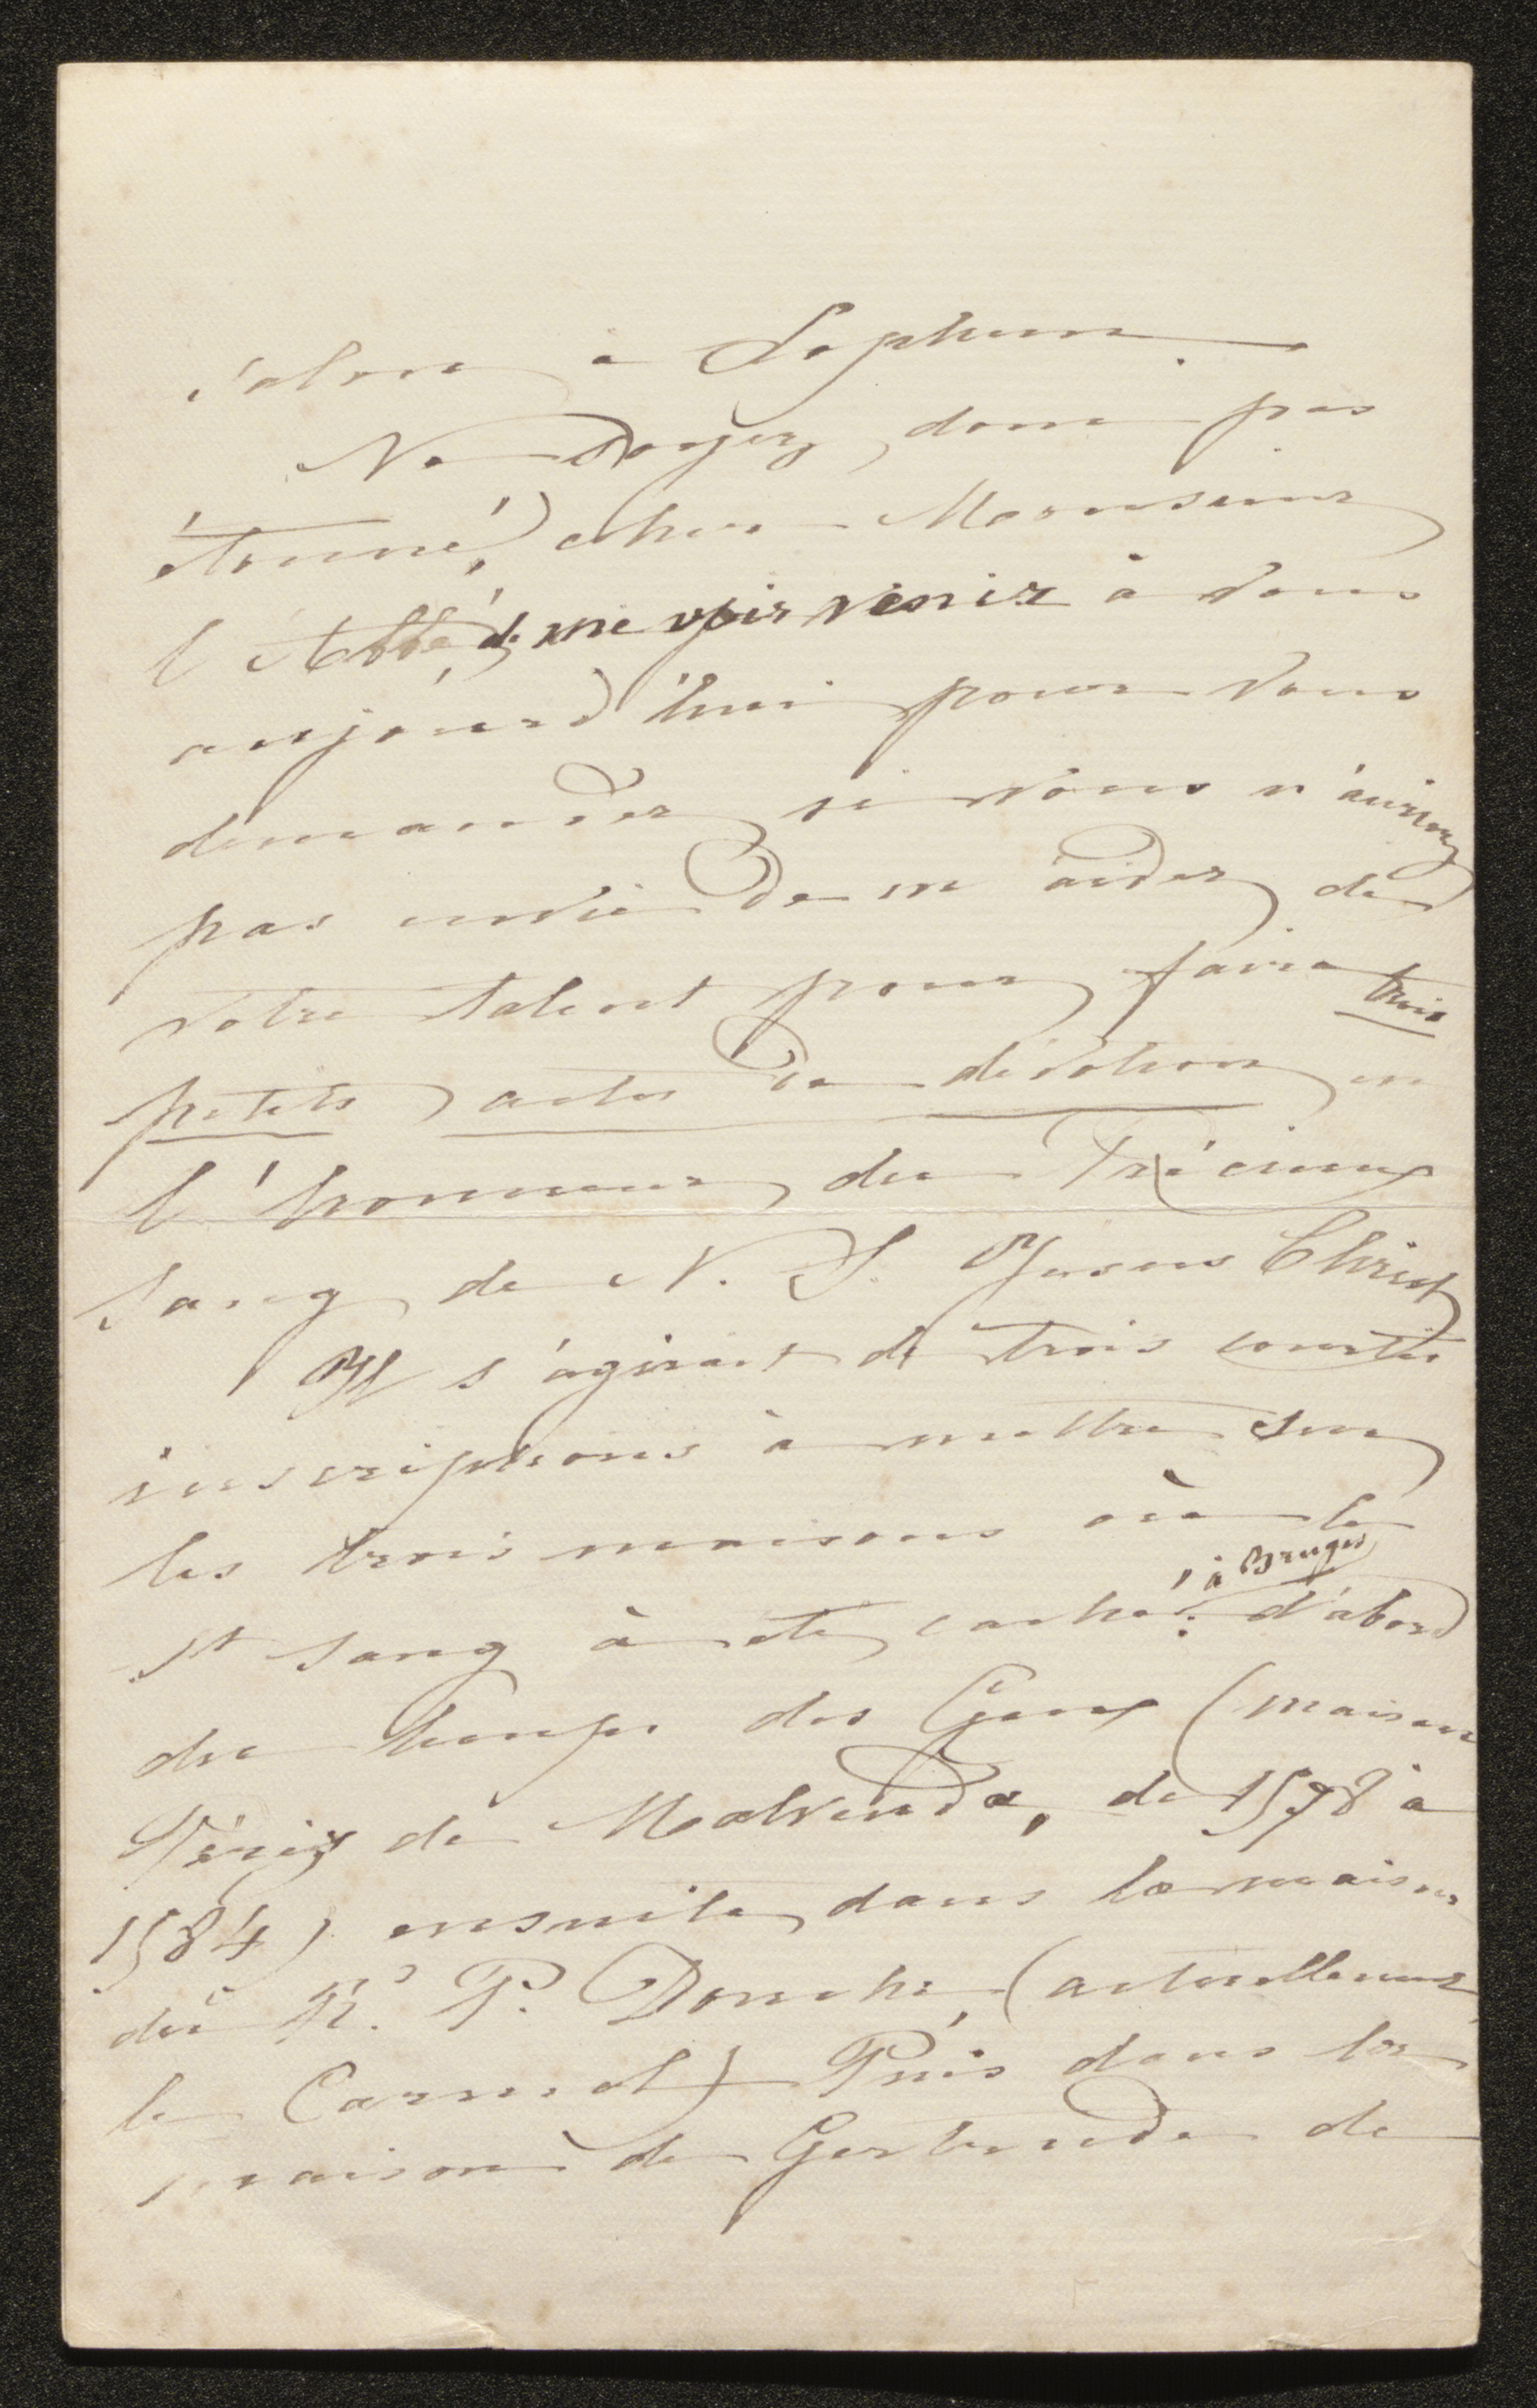 salon à Lophem.
Ne soyez donc pas
étonné, cher Monsieur
l'Abbé, de me voir venir à vous
aujourd'hui pour vous
demander si vous n'auriez
pas envie de m'aider de
votre talent pour faire trois
petits actes de dévotion en
l'honneur du Précieux
Sang de N. S. Jésus Christ
Il s'agirait de trois courtes
inscriptions à mettre sur
les trois maisons où le
St Sang à été caché, à Bruges: d'abord
du temps des Gueux (maison
Pérez de Malvenda, de 1578 à
1584) ensuite dans la maison
du R. P. Donche, (actuellement
le Carmel) Puis dans la
maison de Gertrude de